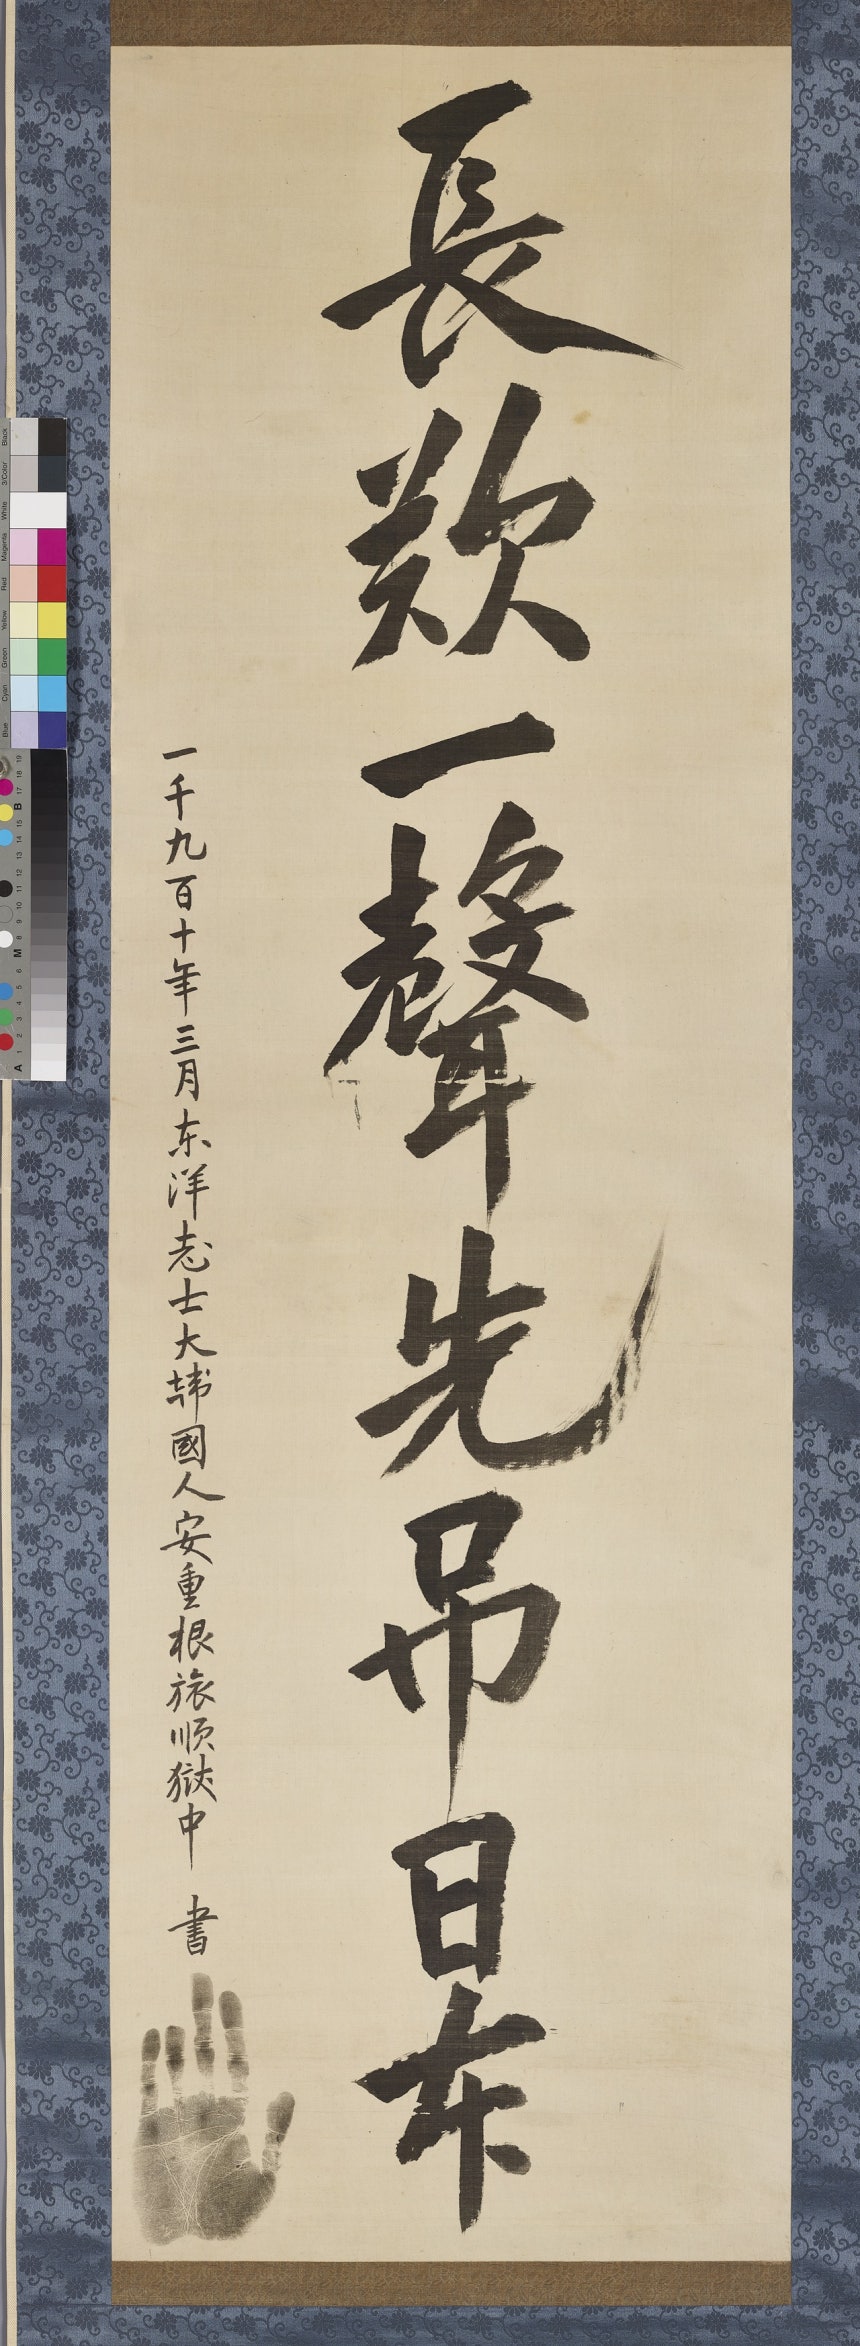 長歎一聲先吊日本
一千九百十年三月东洋志士大韓國人安重根旅順獄中 書
Blue Cyan Green Yellow Red Magenta White 3/Color Black
A 1 2 3 4 5 6 M 8 9 10 11 12 13 14 15 B 17 18 19